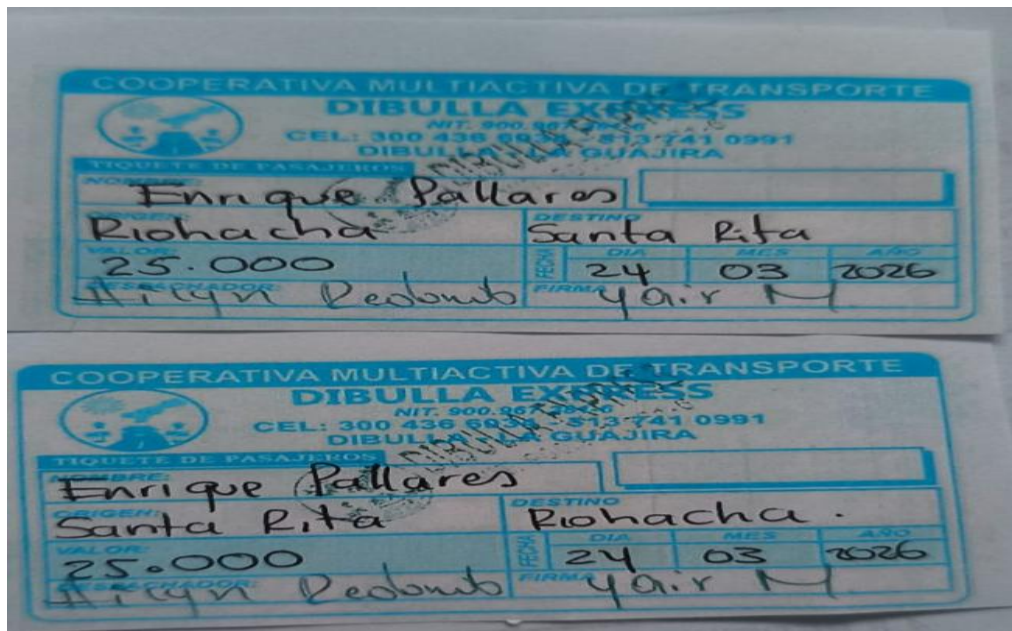 COOPERATIVA MULTIACTIVA DE TRANSPORTE
DIBULLA EXPRESS
NIT. 900.967
CEL: 300 436 6036 - 313 741 0991
DIBULLA - LA GUAJIRA
TIQUETE DE PASAJEROS
NOMBRE: Enrique Pallares
ORIGEN: Riohacha
DESTINO Santa Rita
VALOR: 25.000
FECHA DIA 24 MES 03 AÑO 2026
DESPACHADOR: Redondo
FIRMA Yair M
COOPERATIVA MULTIACTIVA DE TRANSPORTE
DIBULLA EXPRESS
NIT. 900.967
CEL: 300 436 6036 - 313 741 0991
DIBULLA - LA GUAJIRA
TIQUETE DE PASAJEROS
NOMBRE: Enrique Pallares
ORIGEN: Santa Rita
DESTINO Riohacha.
VALOR: 25.000
FECHA DIA 24 MES 03 AÑO 2026
DESPACHADOR: Redondo
FIRMA Yair M